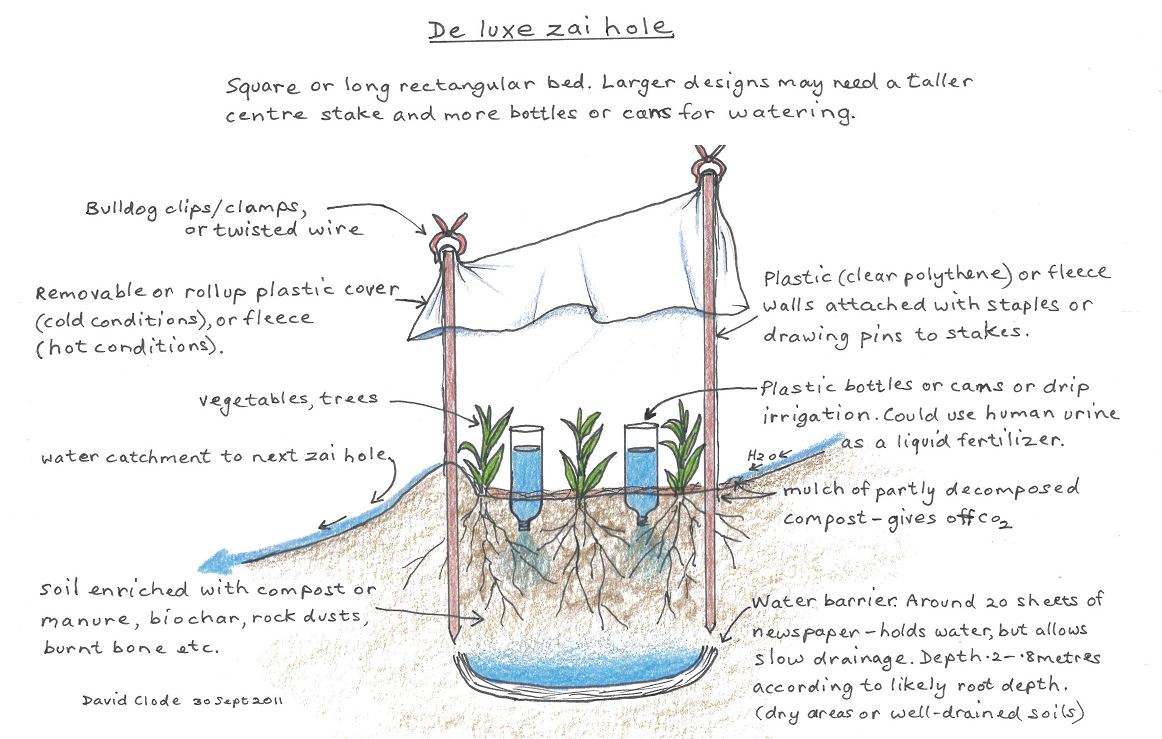 De luxe zai hole
Square or long rectangular bed. Larger designs may need a taller
centre stake and more bottles or cans for watering.
Bulldog clips/clamps,
or twisted wire
Removable or rollup plastic cover
(cold conditions), or fleece
(hot conditions).
Plastic (clear polythene) or fleece
walls attached with staples or
drawing pins to stakes.
vegetables, trees
Plastic bottles or cans or drip
irrigation. Could use human urine
as a liquid fertilizer.
water catchment to next zai hole
H2O
mulch of partly decomposed
compost - gives off CO2
Soil enriched with compost or
manure, biochar, rock dusts,
burnt bone etc.
Water barrier. Around 20 sheets of
newspaper - holds water, but allows
slow drainage. Depth ·2 - ·8 metres
according to likely root depth.
(dry areas or well-drained soils)
David Clode 30 Sept 2011